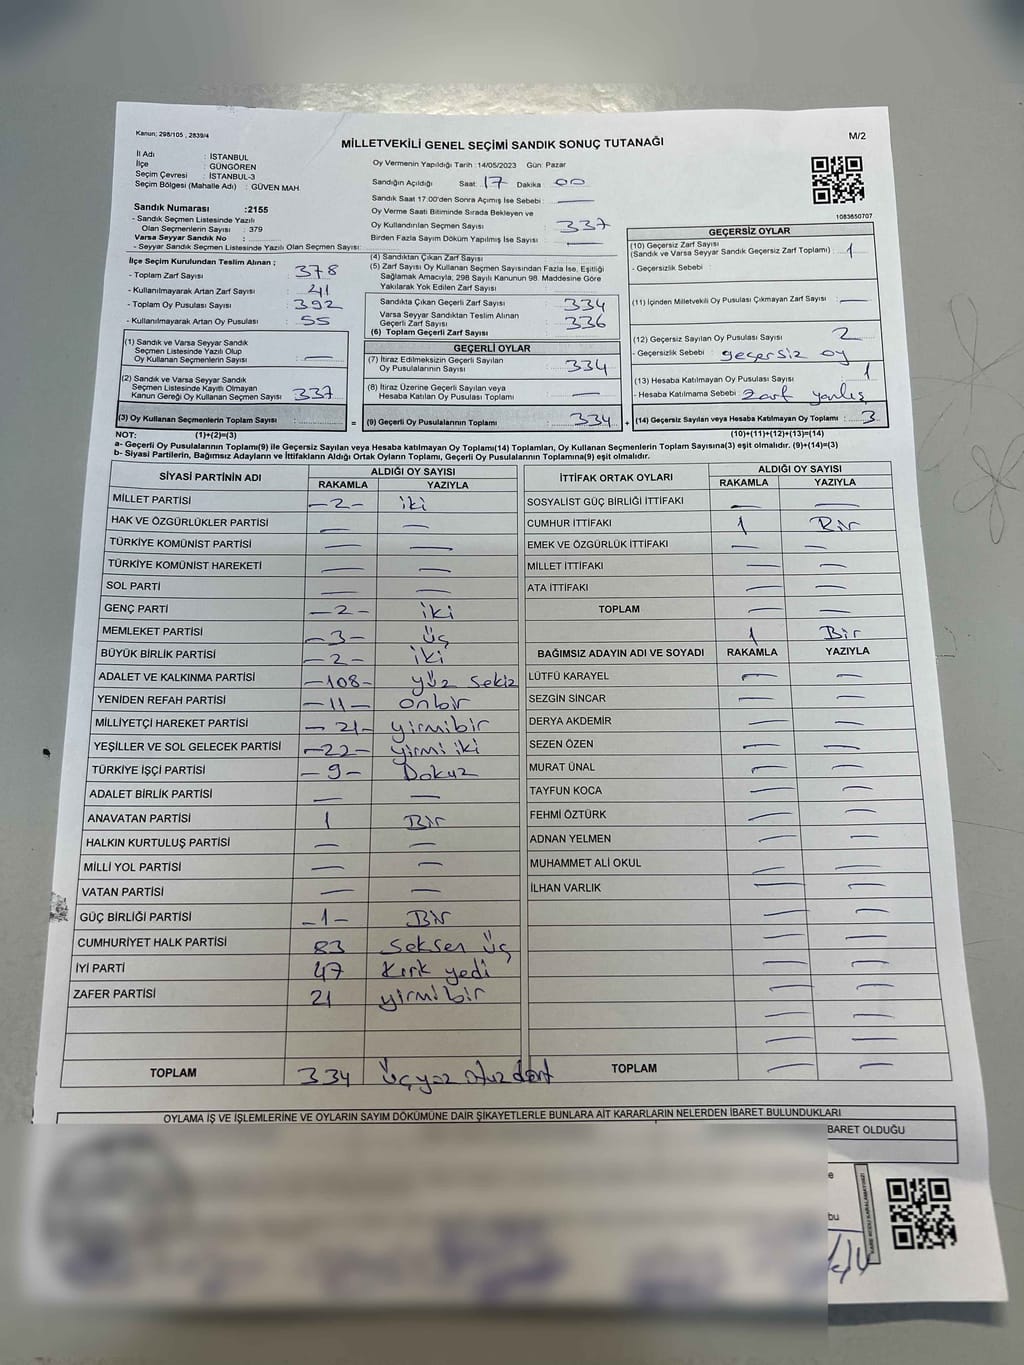 Kanun; 298/105 , 2839/4
M/2
MİLLETVEKİLİ GENEL SEÇİMİ SANDIK SONUÇ TUTANAĞI
İl Adı : İSTANBUL
İlçe : GÜNGÖREN
Seçim Çevresi : İSTANBUL-3
Seçim Bölgesi (Mahalle Adı) : GÜVEN MAH.
Sandık Numarası :2155
- Sandık Seçmen Listesinde Yazılı
Olan Seçmenlerin Sayısı : 379
Varsa Seyyar Sandık No :
- Seyyar Sandık Seçmen Listesinde Yazılı Olan Seçmen Sayısı:
İlçe Seçim Kurulundan Teslim Alınan ;
- Toplam Zarf Sayısı : 378
- Kullanılmayarak Artan Zarf Sayısı : 41
- Toplam Oy Pusulası Sayısı : 392
- Kullanılmayarak Artan Oy Pusulası : 55
(1) Sandık ve Varsa Seyyar Sandık
Seçmen Listesinde Yazılı Olup
Oy Kullanan Seçmenlerin Sayısı : —
(2) Sandık ve Varsa Seyyar Sandık
Seçmen Listesinde Kayıtlı Olmayan
Kanun Gereği Oy Kullanan Seçmen Sayısı : 337
(3) Oy Kullanan Seçmenlerin Toplam Sayısı :
Oy Vermenin Yapıldığı Tarih :14/05/2023 Gün: Pazar
Sandığın Açıldığı Saat: 17 Dakika : 00
Sandık Saat 17:00'den Sonra Açımış İse Sebebi : —
Oy Verme Saati Bitiminde Sırada Bekleyen ve
Oy Kullandırılan Seçmen Sayısı : 337
Birden Fazla Sayım Döküm Yapılmış İse Sayısı : —
(4) Sandıktan Çıkan Zarf Sayısı
(5) Zarf Sayısı Oy Kullanan Seçmen Sayısından Fazla İse, Eşitliği
Sağlamak Amacıyla, 298 Sayılı Kanunun 98. Maddesine Göre
Yakılarak Yok Edilen Zarf Sayısı
Sandıkta Çıkan Geçerli Zarf Sayısı : 334
Varsa Seyyar Sandıktan Teslim Alınan
Geçerli Zarf Sayısı : 336
(6) Toplam Geçerli Zarf Sayısı
GEÇERLİ OYLAR
(7) İtiraz Edilmeksizin Geçerli Sayılan
Oy Pusulalarının Sayısı : 334
(8) İtiraz Üzerine Geçerli Sayılan veya
Hesaba Katılan Oy Pusulası Toplamı : —
= (9) Geçerli Oy Pusulalarının Toplamı : 334 +
1083650707
GEÇERSİZ OYLAR
(10) Geçersiz Zarf Sayısı
(Sandık ve Varsa Seyyar Sandık Geçersiz Zarf Toplamı) : 1
- Geçersizlik Sebebi :
(11) İçinden Milletvekili Oy Pusulası Çıkmayan Zarf Sayısı : —
(12) Geçersiz Sayılan Oy Pusulası Sayısı : 2
- Geçersizlik Sebebi : geçersiz oy
(13) Hesaba Katılmayan Oy Pusulası Sayısı : 1
- Hesaba Katılmama Sebebi : zarf yanlış
(14) Geçersiz Sayılan veya Hesaba Katılmayan Oy Pusulası Toplamı : 3
NOT: (1)+(2)=(3) (10)+(11)+(12)+(13)=(14)
a- Geçerli Oy Pusulalarının Toplamı(9) ile Geçersiz Sayılan veya Hesaba katılmayan Oy Toplamı(14) Toplamları, Oy Kullanan Seçmenlerin Toplam Sayısına(3) eşit olmalıdır. (9)+(14)=(3)
b- Siyasi Partilerin, Bağımsız Adayların ve İttifakların Aldığı Ortak Oyların Toplamı, Geçerli Oy Pusulalarının Toplamına(9) eşit olmalıdır.
SİYASİ PARTİNİN ADI ALDIĞI OY SAYISI
RAKAMLA YAZIYLA
MİLLET PARTİSİ –2– iki
HAK VE ÖZGÜRLÜKLER PARTİSİ — —
TÜRKİYE KOMÜNİST PARTİSİ — —
TÜRKİYE KOMÜNİST HAREKETİ — —
SOL PARTİ — —
GENÇ PARTİ –2– iki
MEMLEKET PARTİSİ –3– üç
BÜYÜK BİRLİK PARTİSİ –2– iki
ADALET VE KALKINMA PARTİSİ –108– yüz sekiz
YENİDEN REFAH PARTİSİ –11– onbir
MİLLİYETÇİ HAREKET PARTİSİ –21– yirmibir
YEŞİLLER VE SOL GELECEK PARTİSİ –22– yirmi iki
TÜRKİYE İŞÇİ PARTİSİ –9– Dokuz
ADALET BİRLİK PARTİSİ — —
ANAVATAN PARTİSİ 1 Bir
HALKIN KURTULUŞ PARTİSİ — —
MİLLİ YOL PARTİSİ — —
VATAN PARTİSİ — —
GÜÇ BİRLİĞİ PARTİSİ –1– Bir
CUMHURİYET HALK PARTİSİ 83 seksen üç
İYİ PARTİ 47 kırk yedi
ZAFER PARTİSİ 21 yirmibir
TOPLAM 334 üçyüz otuz dört
İTTİFAK ORTAK OYLARI ALDIĞI OY SAYISI
RAKAMLA YAZIYLA
SOSYALİST GÜÇ BİRLİĞİ İTTİFAKI — —
CUMHUR İTTİFAKI 1 Bir
EMEK VE ÖZGÜRLÜK İTTİFAKI — —
MİLLET İTTİFAKI — —
ATA İTTİFAKI — —
TOPLAM — —
1 Bir
BAĞIMSIZ ADAYIN ADI VE SOYADI RAKAMLA YAZIYLA
LÜTFÜ KARAYEL — —
SEZGİN SİNCAR — —
DERYA AKDEMİR — —
SEZEN ÖZEN — —
MURAT ÜNAL — —
TAYFUN KOCA — —
FEHMİ ÖZTÜRK — —
ADNAN YELMEN — —
MUHAMMET ALİ OKUL — —
İLHAN VARLIK — —
TOPLAM — —
OYLAMA İŞ VE İŞLEMLERİNE VE OYLARIN SAYIM DÖKÜMÜNE DAİR ŞİKAYETLERLE BUNLARA AİT KARARLARIN NELERDEN İBARET BULUNDUKLARI
BARET OLDUĞU
bu